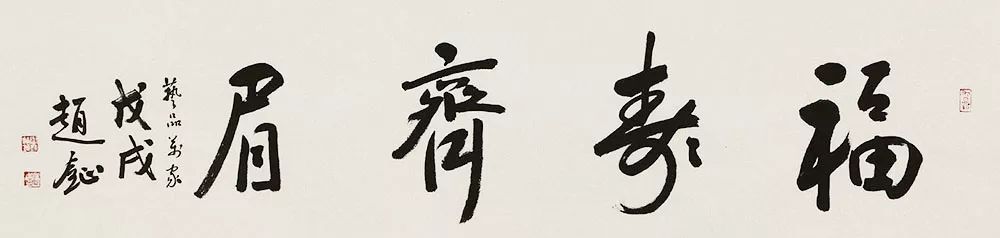 福壽齊眉
藝品萬家
戊戌
趙鉞